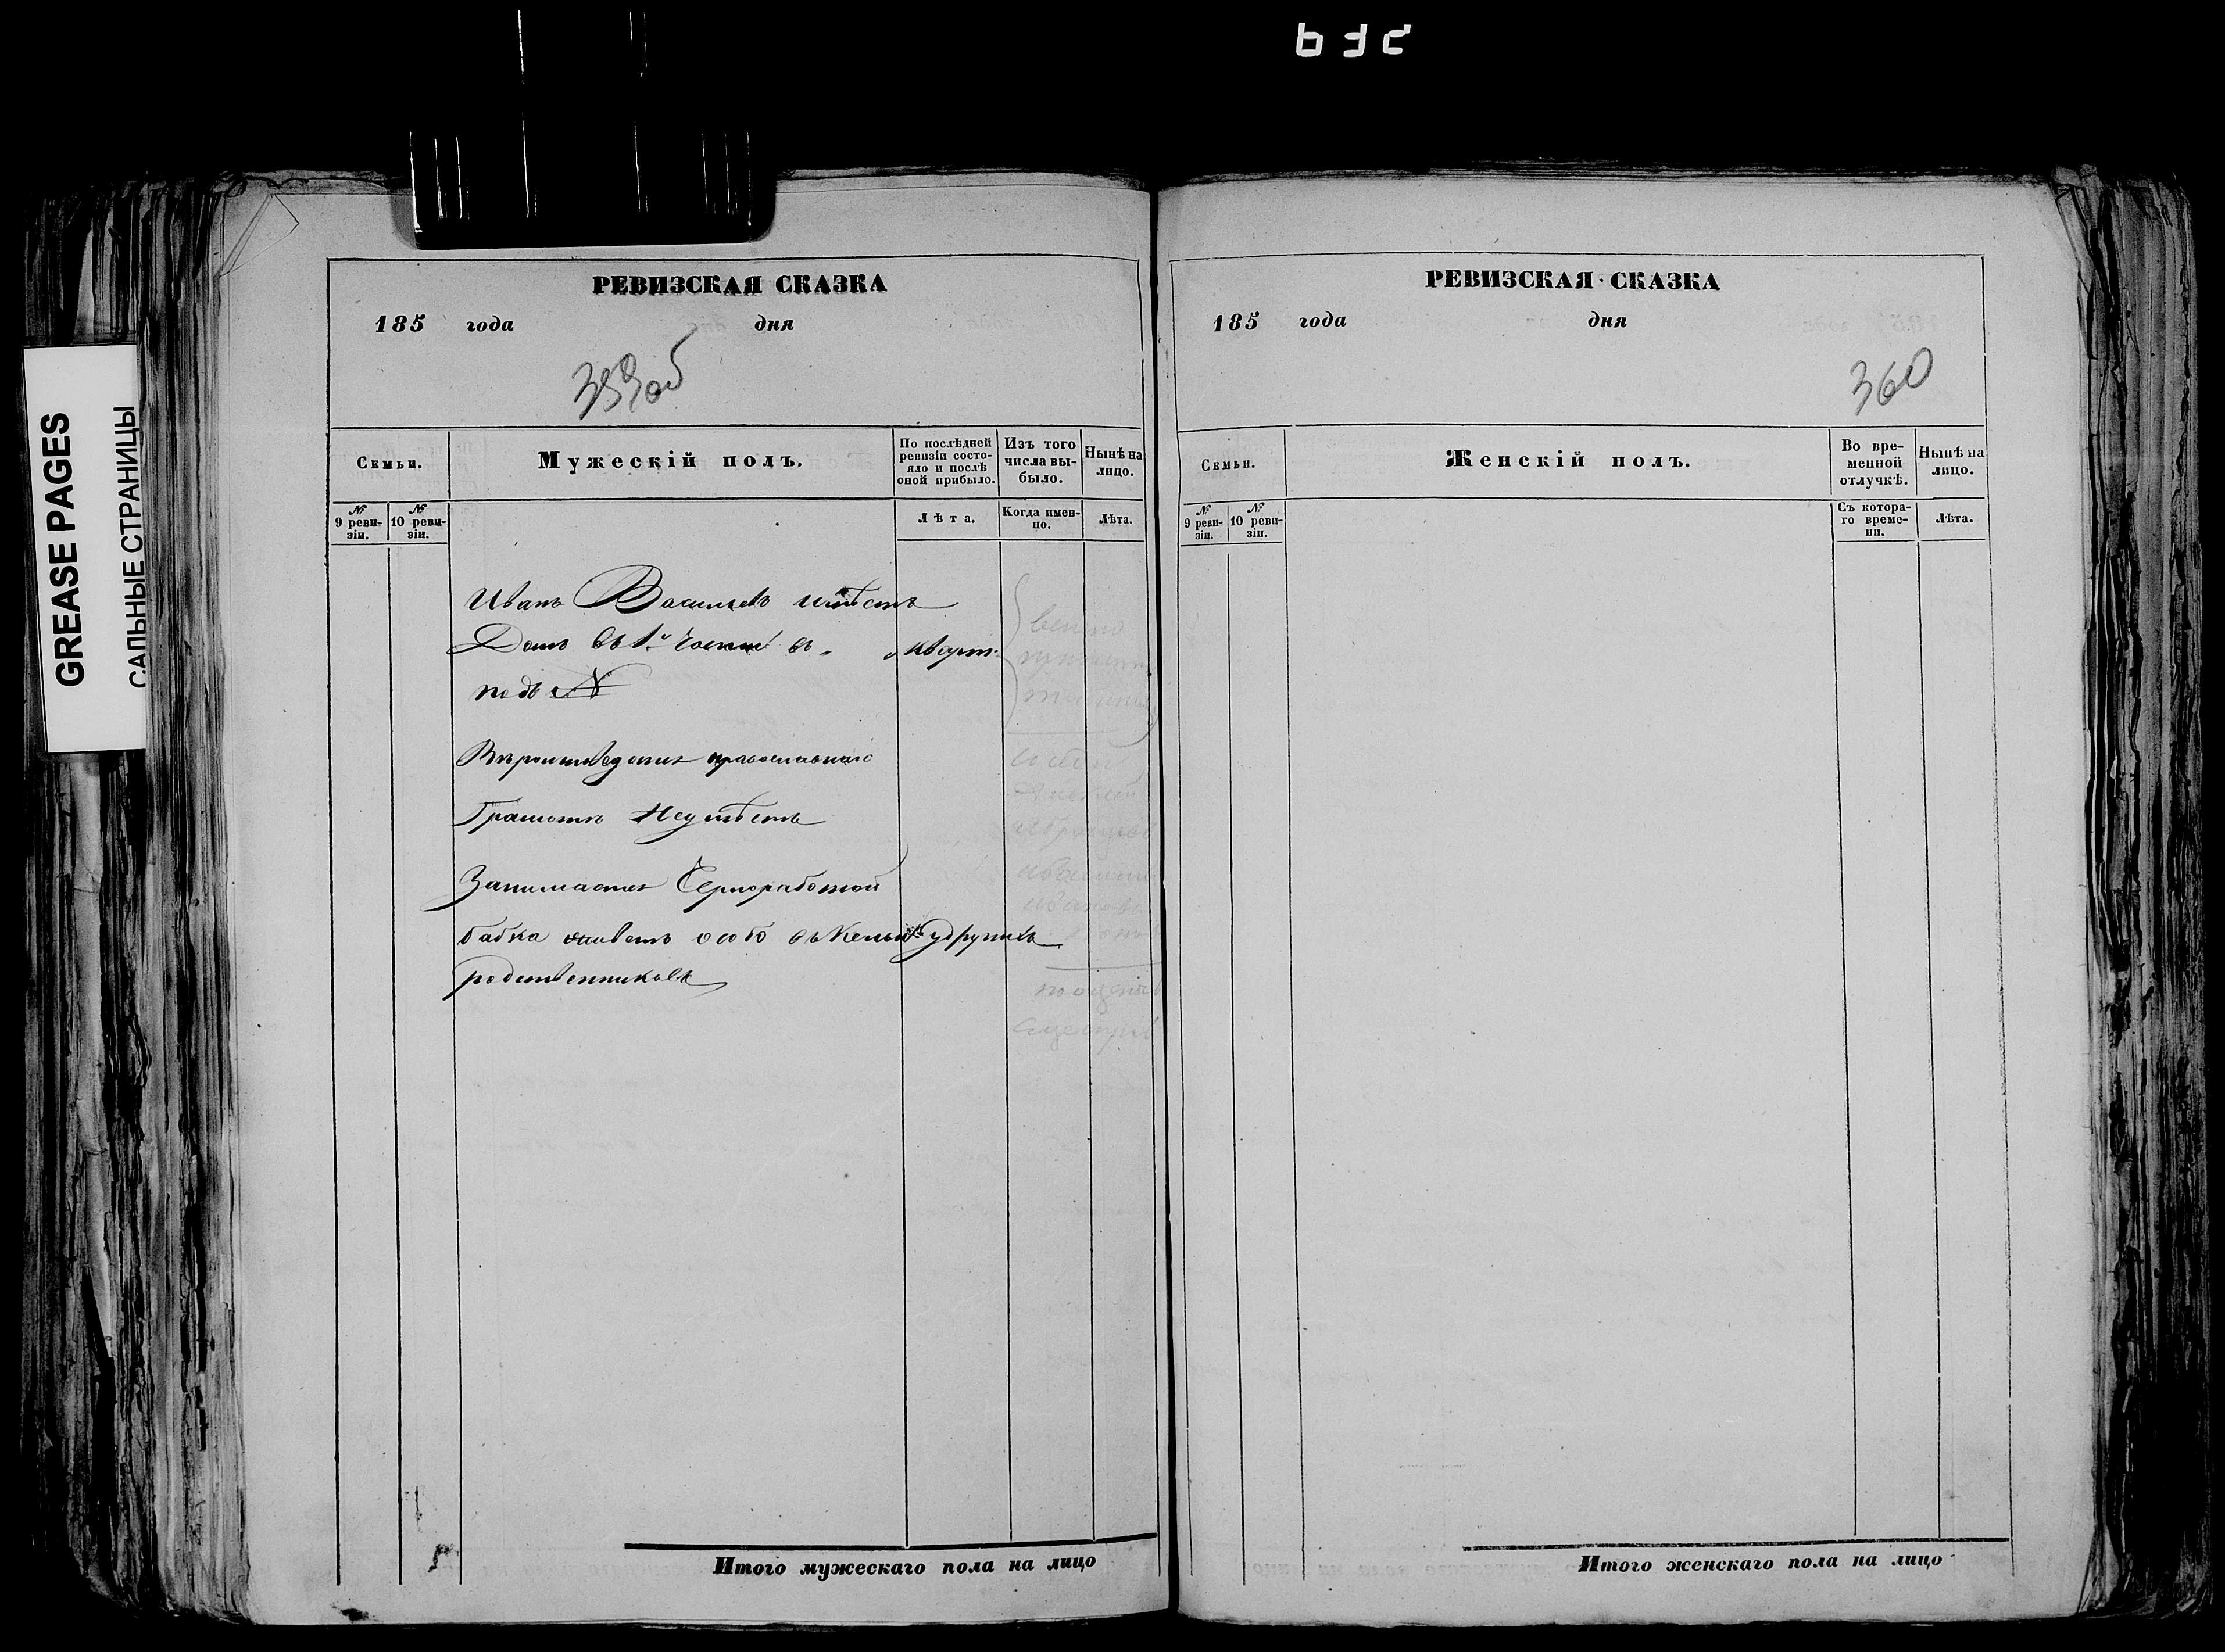 GREASE PAGES
САЛЬНЫЕ СТРАНИЦЫ
РЕВИЗСКАЯ СКАЗКА
185 года дня
359об
Семьи.
Мужескій полъ.
По послѣдней ревизіи состояло и послѣ оной прибыло.
Изъ того числа выбыло.
Нынѣ на лицо.
№ 9 ревизіи.
№ 10 ревизіи.
Лѣта.
Когда именно.
Лѣта.
Иванъ Васильевъ имѣетъ
Домъ въ 1й части въ " " кварт.
подъ №
Вѣроисповеданія православнаго
Грамотѣ Неумѣетъ
Занимается Черноработой
бабка живетъ особо удругихъ
родственниковъ
Итого мужескаго пола на лицо
РЕВИЗСКАЯ СКАЗКА
185 года дня
360
Семьи.
Женскій полъ.
Во временной отлучкѣ.
Нынѣ на лицо.
№ 9 ревизіи.
№ 10 ревизіи.
Съ котораго времени.
Лѣта.
Итого женскаго пола на лицо